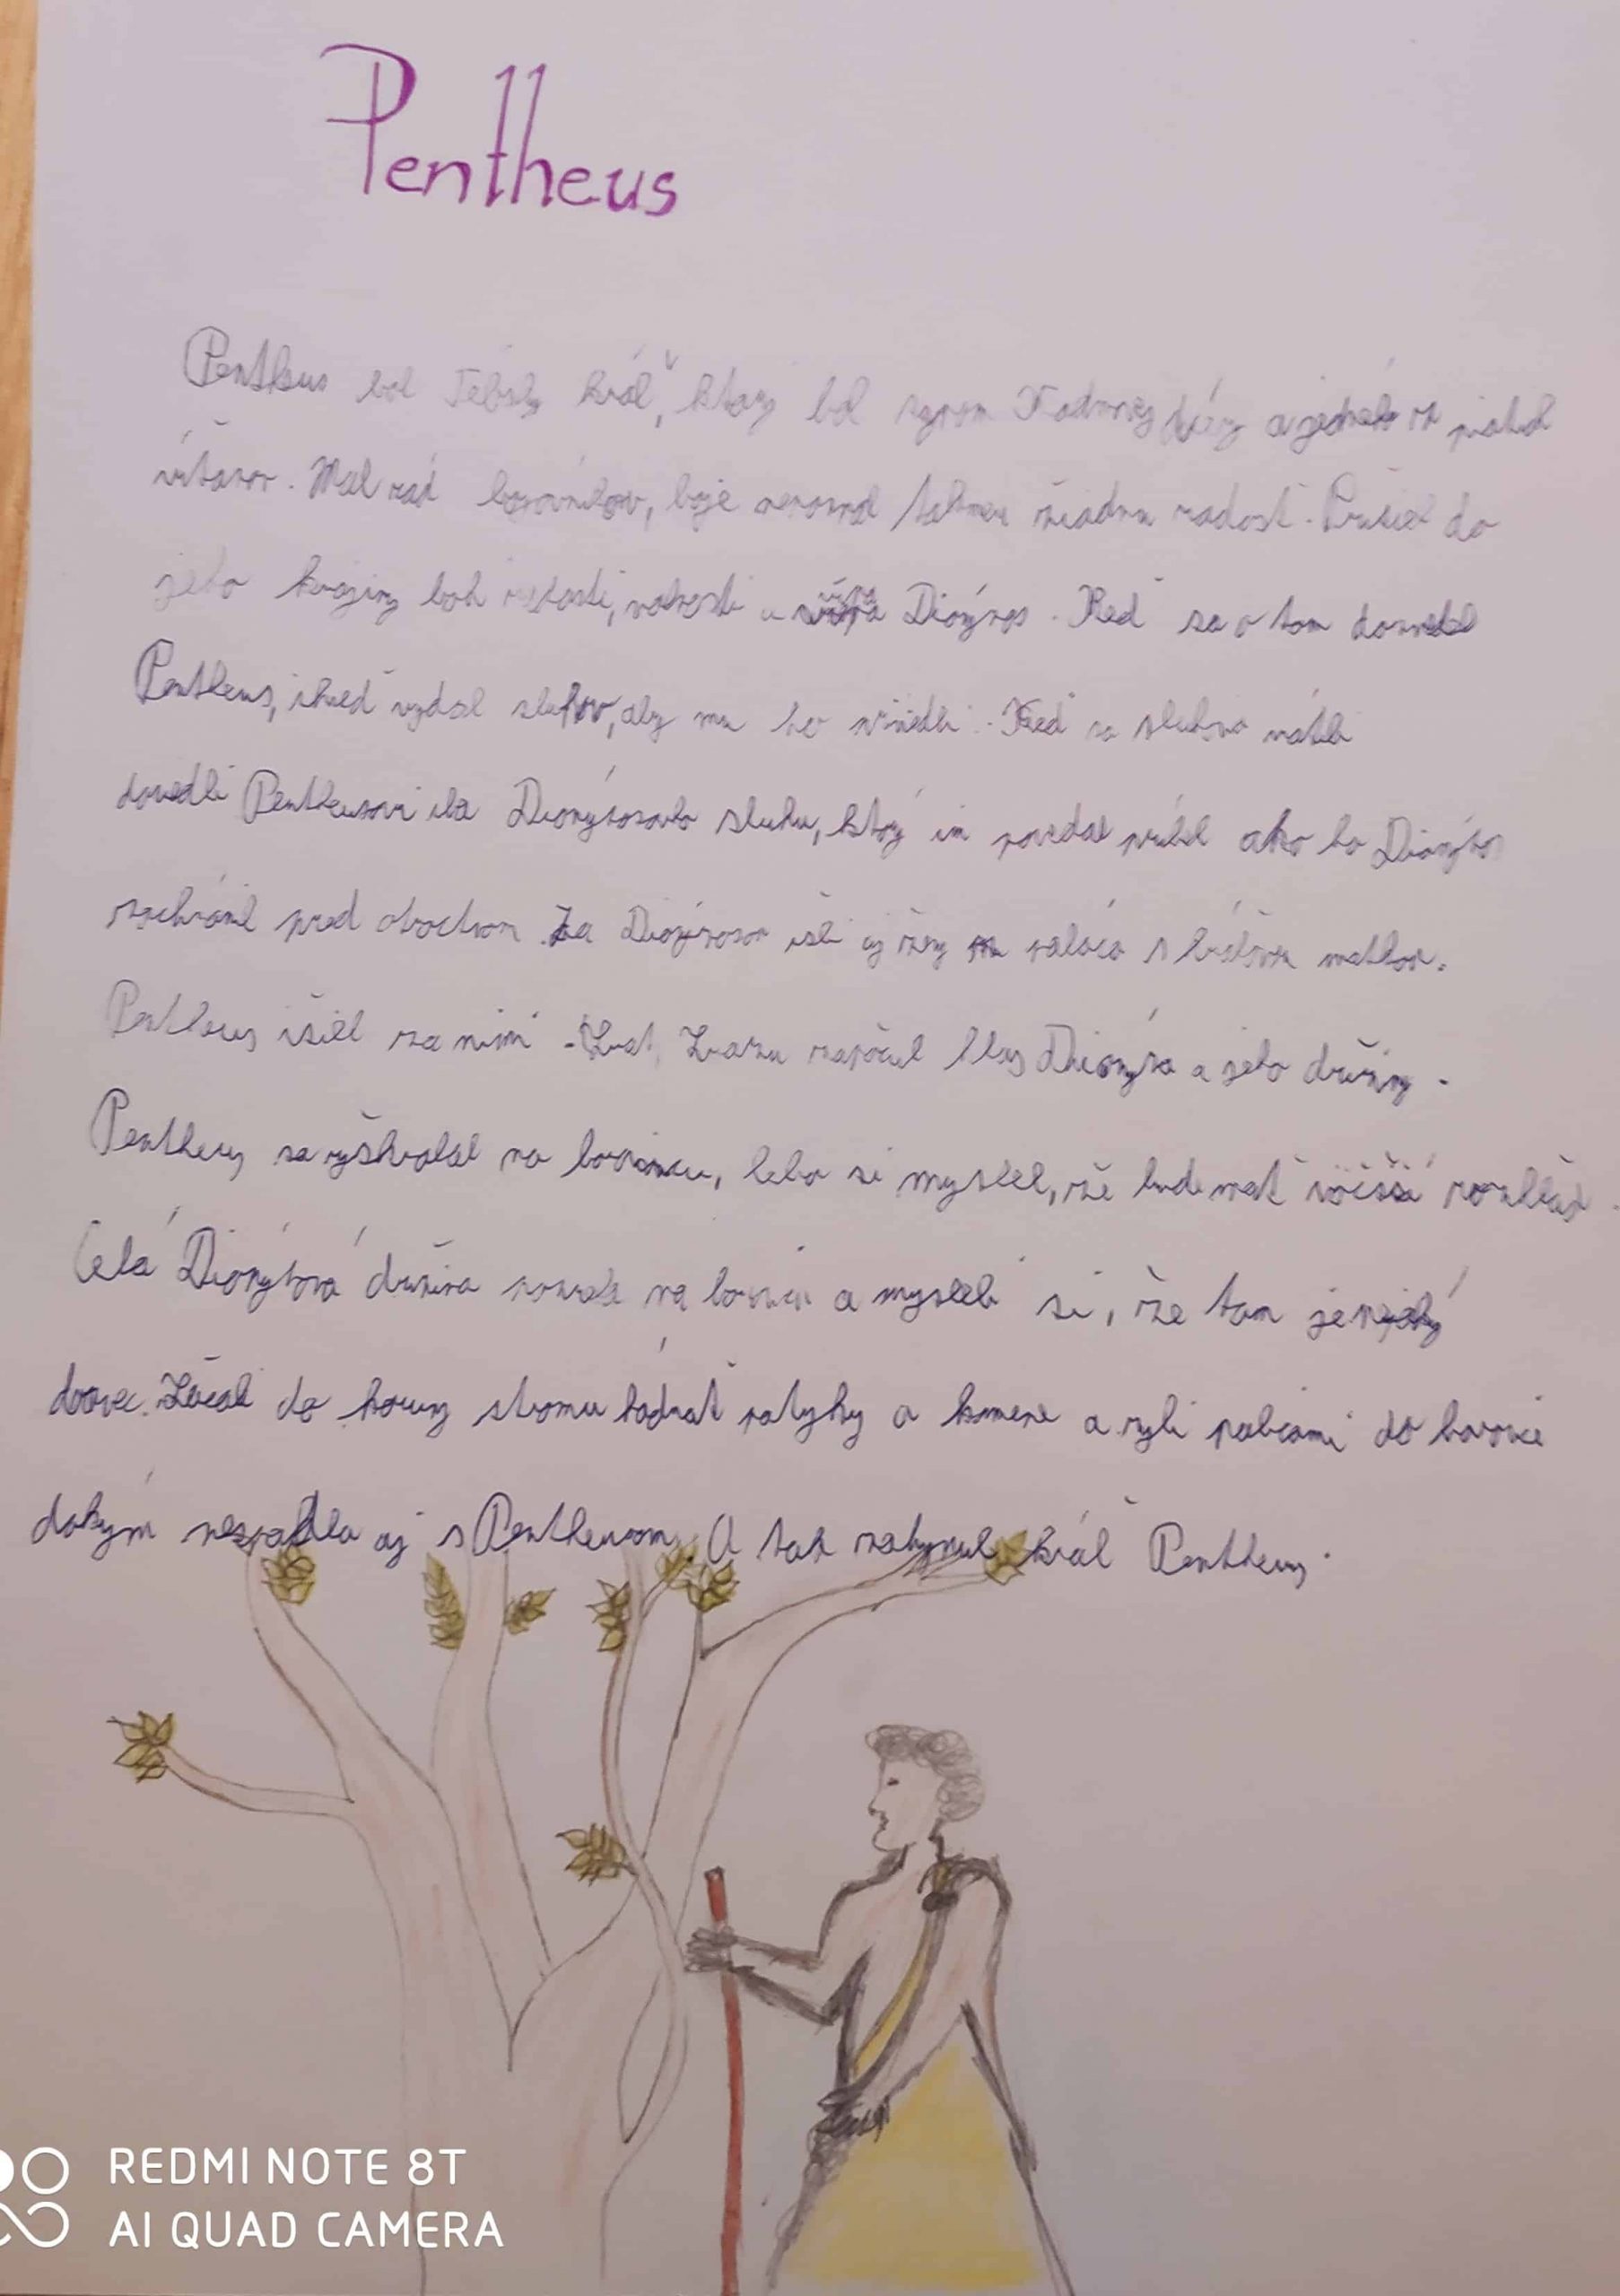 Pentheus
Pentheus bol Tébsky kráľ, ktorý bol synom Kadmovej dcéry a jedného z piatich
víťazov. Mal rád bojovníkov, boje nepoznal takmer žiadnu radosť. Prišiel do
jeho krajiny boh radosti, veselosti a vína Dionýzos. Keď sa o tom dozvedel
Pentheus, ihneď vyslal sluhov, aby mu ho priviedli. Keď sa sluhovia vrátili
doviedli Pentheusovi iba Dionýzosovho sluhu, ktorý im povedal príbeh ako ho Dionýzos
zachránil pred otroctvom. Za Dionýzosom išli aj ženy z paláca s kráľovou matkou.
Pentheus išiel za nimi. Zrazu započul hlas Dionýza a jeho družiny.
Pentheus sa vyškrabal na borovicu, lebo si myslel, že bude mať väčší rozhľad.
Celá Dionýzova družina pozerala na borovicu a mysleli si, že tam je nejaký
dravec. Začali do koruny stromu hádzať patyky a kamene a ryli palicami do borovice
dokým nespadla aj s Pentheusom. A tak zahynul kráľ Pentheus.
REDMI NOTE 8T
AI QUAD CAMERA